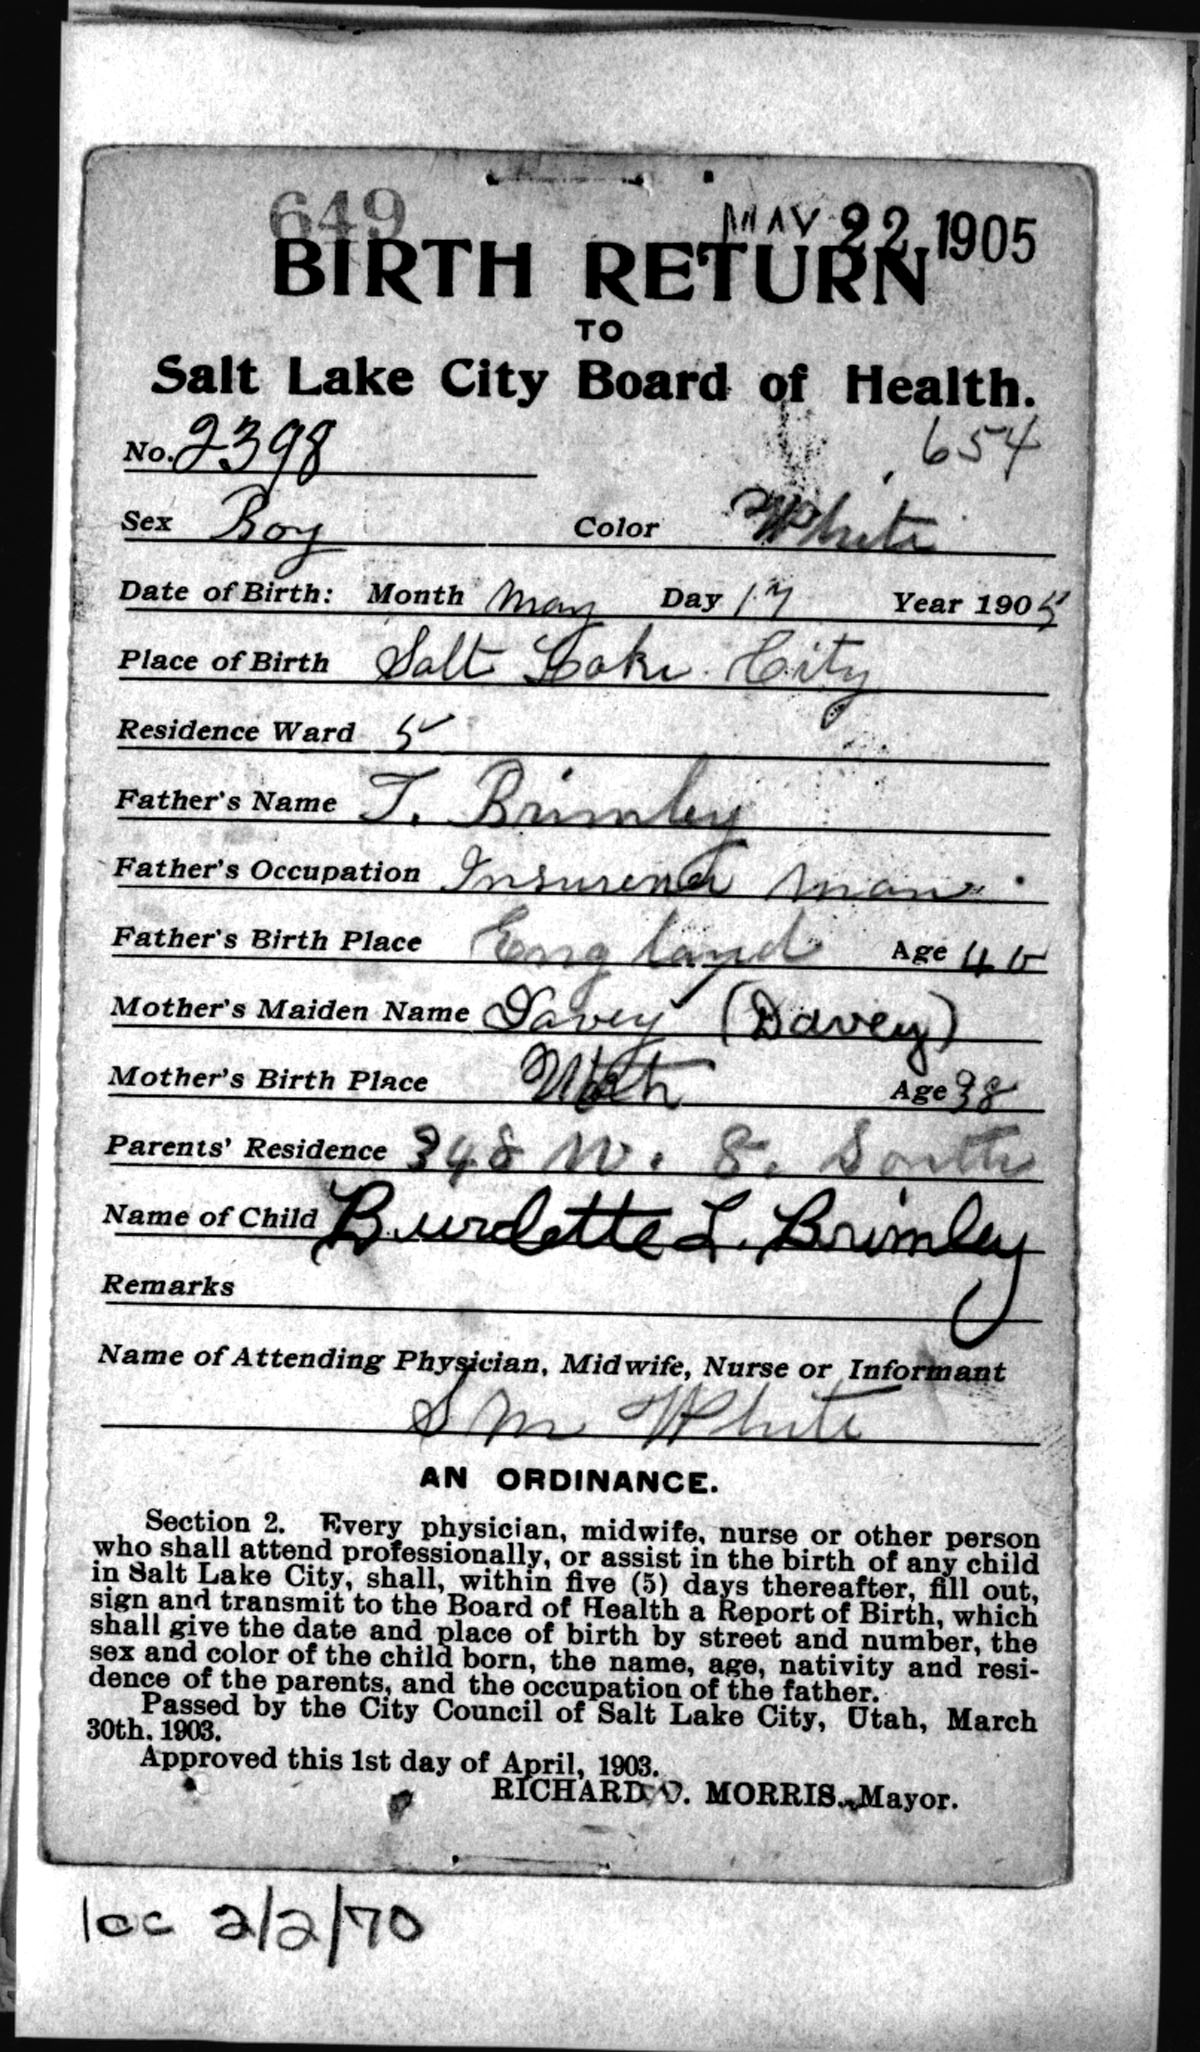 649
MAY 22 1905
BIRTH RETURN
TO
Salt Lake City Board of Health.
No. 2398 654
Sex Boy Color White
Date of Birth: Month May Day 17 Year 1905
Place of Birth Salt Lake City
Residence Ward 5
Father's Name T. Brimley
Father's Occupation Insurence man
Father's Birth Place England Age
Mother's Maiden Name Davey (Davey)
Mother's Birth Place Age 38
Parents' Residence 348 W. 8. South
Name of Child Burdette L. Brimley
Remarks
Name of Attending Physician, Midwife, Nurse or Informant
S M White
AN ORDINANCE.
Section 2. Every physician, midwife, nurse or other person
who shall attend professionally, or assist in the birth of any child
in Salt Lake City, shall, within five (5) days thereafter, fill out,
sign and transmit to the Board of Health a Report of Birth, which
shall give the date and place of birth by street and number, the
sex and color of the child born, the name, age, nativity and resi-
dence of the parents, and the occupation of the father.
Passed by the City Council of Salt Lake City, Utah, March
30th, 1903.
Approved this 1st day of April, 1903.
RICHARD MORRIS, Mayor.
lcc 2/2/70